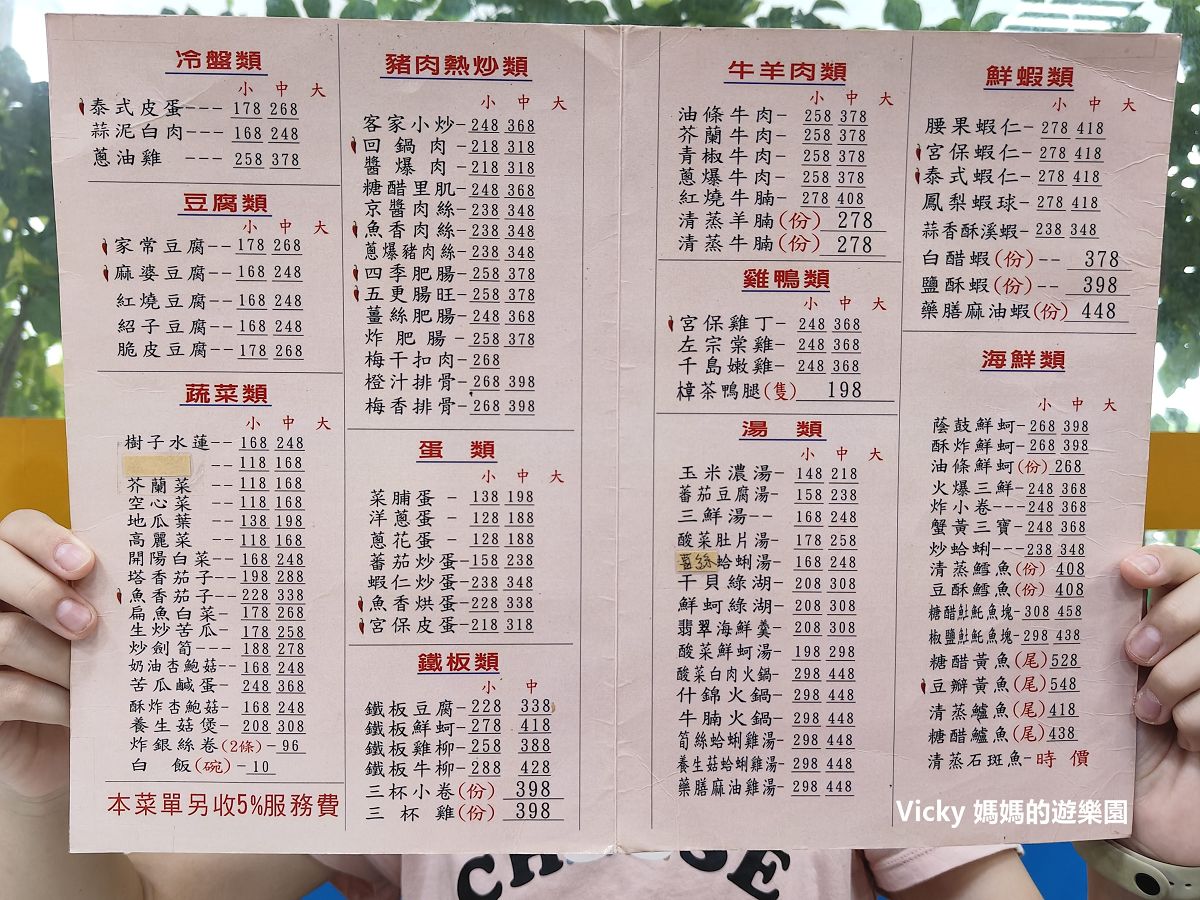 冷盤類
小 中 大
泰式皮蛋--- 178 268
蒜泥白肉--- 168 248
蔥油雞 --- 258 378
豆腐類
小 中 大
家常豆腐-- 178 268
麻婆豆腐-- 168 248
紅燒豆腐-- 168 248
紹子豆腐-- 168 248
脆皮豆腐-- 178 268
蔬菜類
小 中 大
樹子水蓮-- 168 248
-- 118 168
芥蘭菜 -- 118 168
空心菜 -- 118 168
地瓜葉 -- 138 198
高麗菜 -- 118 168
開陽白菜-- 168 248
塔香茄子-- 198 288
魚香茄子-- 228 338
扁魚白菜- 178 268
生炒苦瓜- 178 258
炒劍筍--- 188 278
奶油杏鮑菇-- 168 248
苦瓜鹹蛋- 248 368
酥炸杏鮑菇- 168 248
養生菇煲- 208 308
炸銀絲卷(2條)- 96
白 飯(碗)-10
本菜單另收5%服務費
豬肉熱炒類
小 中 大
客家小炒- 248 368
回鍋肉- 218 318
醬爆肉- 218 318
糖醋里肌- 248 368
京醬肉絲- 238 348
魚香肉絲- 238 348
蔥爆豬肉絲- 238 348
四季肥腸- 258 378
五更腸旺- 258 378
薑絲肥腸- 248 368
炸肥腸- 258 378
梅干扣肉- 268
橙汁排骨- 268 398
梅香排骨- 268 398
蛋 類
小 中 大
菜脯蛋 - 138 198
洋蔥蛋 - 128 188
蔥花蛋 - 128 188
蕃茄炒蛋- 158 238
蝦仁炒蛋- 238 348
魚香烘蛋- 228 338
宮保皮蛋- 218 318
鐵板類
小 中
鐵板豆腐- 228 338
鐵板鮮蚵- 278 418
鐵板雞柳- 258 388
鐵板牛柳- 288 428
三杯小卷(份) 398
三 杯 雞(份) 398
牛羊肉類
小 中 大
油條牛肉- 258 378
芥蘭牛肉- 258 378
青椒牛肉- 258 378
蔥爆牛肉- 258 378
紅燒牛腩- 278 408
清蒸羊腩(份) 278
清蒸牛腩(份) 278
雞鴨類
小 中 大
宮保雞丁- 248 368
左宗棠雞- 248 368
千島嫩雞- 248 368
樟茶鴨腿(隻) 198
湯 類
小 中 大
玉米濃湯- 148 218
蕃茄豆腐湯- 158 238
三鮮湯-- 168 248
酸菜肚片湯- 178 258
薑絲蛤蜊湯- 168 248
干貝綠湖- 208 308
鮮蚵綠湖- 208 308
翡翠海鮮羹- 208 308
酸菜鮮蚵湯- 198 298
酸菜白肉火鍋- 298 448
什錦火鍋- 298 448
牛腩火鍋- 298 448
筍絲蛤蜊雞湯- 298 448
養生菇蛤蜊雞湯- 298 448
藥膳麻油雞湯- 298 448
鮮蝦類
小 中 大
腰果蝦仁- 278 418
宮保蝦仁- 278 418
泰式蝦仁- 278 418
鳳梨蝦球- 278 418
蒜香酥溪蝦- 238 348
白醋蝦(份)-- 378
鹽酥蝦(份)-- 398
藥膳麻油蝦(份) 448
海鮮類
小 中 大
蔭鼓鮮蚵- 268 398
酥炸鮮蚵- 268 398
油條鮮蚵(份) 268
火爆三鮮- 248 368
炸小卷--- 248 368
蟹黃三寶- 248 368
炒蛤蜊--- 238 348
清蒸鱈魚(份) 408
豆酥鱈魚(份) 408
糖醋魠魠魚塊- 308 458
椒鹽魠魠魚塊- 298 438
糖醋黃魚(尾) 528
豆瓣黃魚(尾) 548
清蒸鱸魚(尾) 418
糖醋鱸魚(尾) 438
清蒸石斑魚- 時 價
Vicky 媽媽的遊樂園